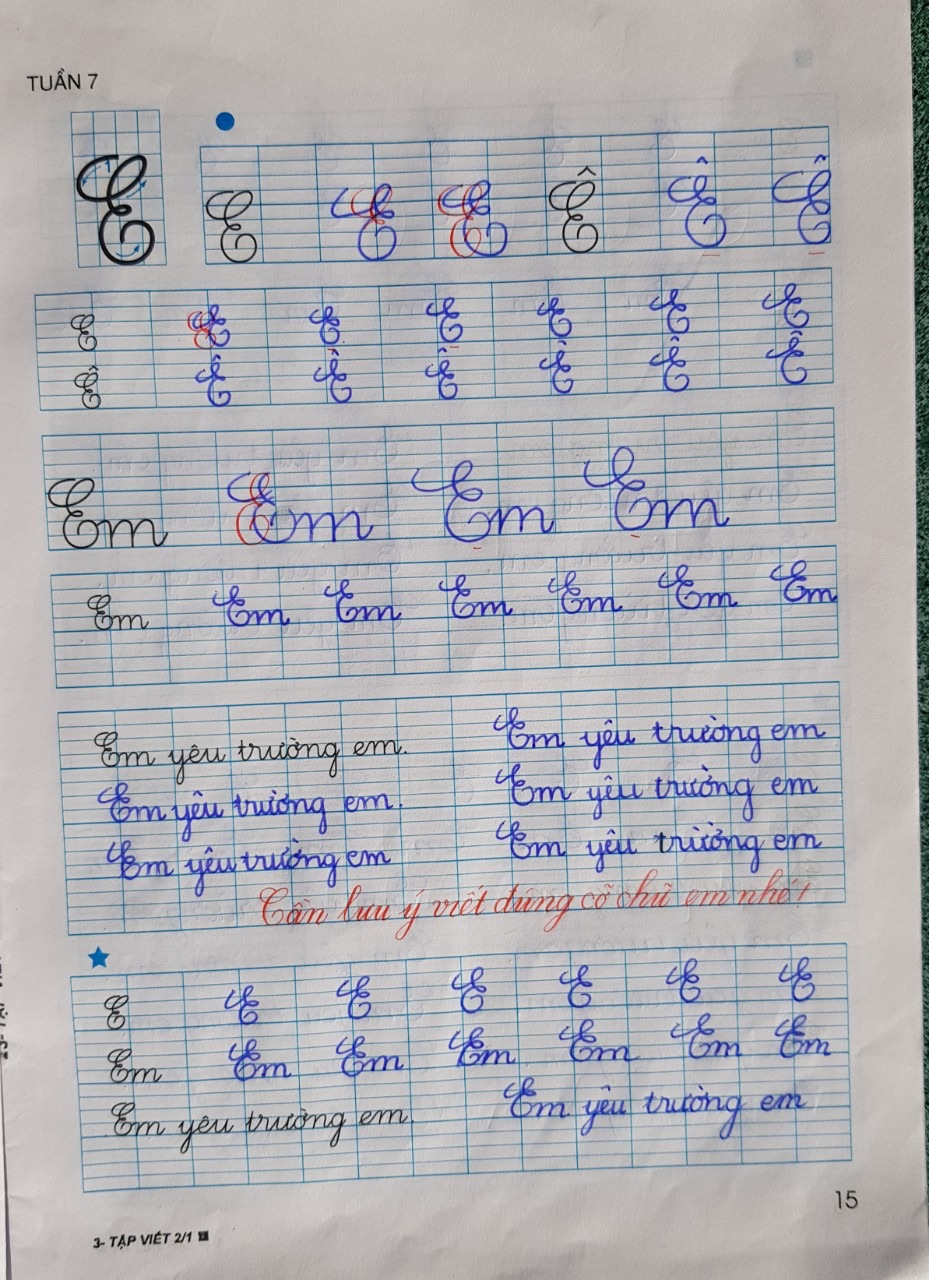 TUẦN 7
E
E E E Ê Ê Ê
E E E E E E E
Ê Ê Ê Ê Ê Ê Ê
Em Em Em Em
Em Em Em Em Em Em Em
Em yêu trường em. Em yêu trường em
Em yêu trường em. Em yêu trường em
Em yêu trường em Em yêu trường em
Cần lưu ý viết đúng cỡ chữ em nhé!
E E E E E E E
Em Em Em Em Em Em Em
Em yêu trường em. Em yêu trường em
15
3- TẬP VIẾT 2/1